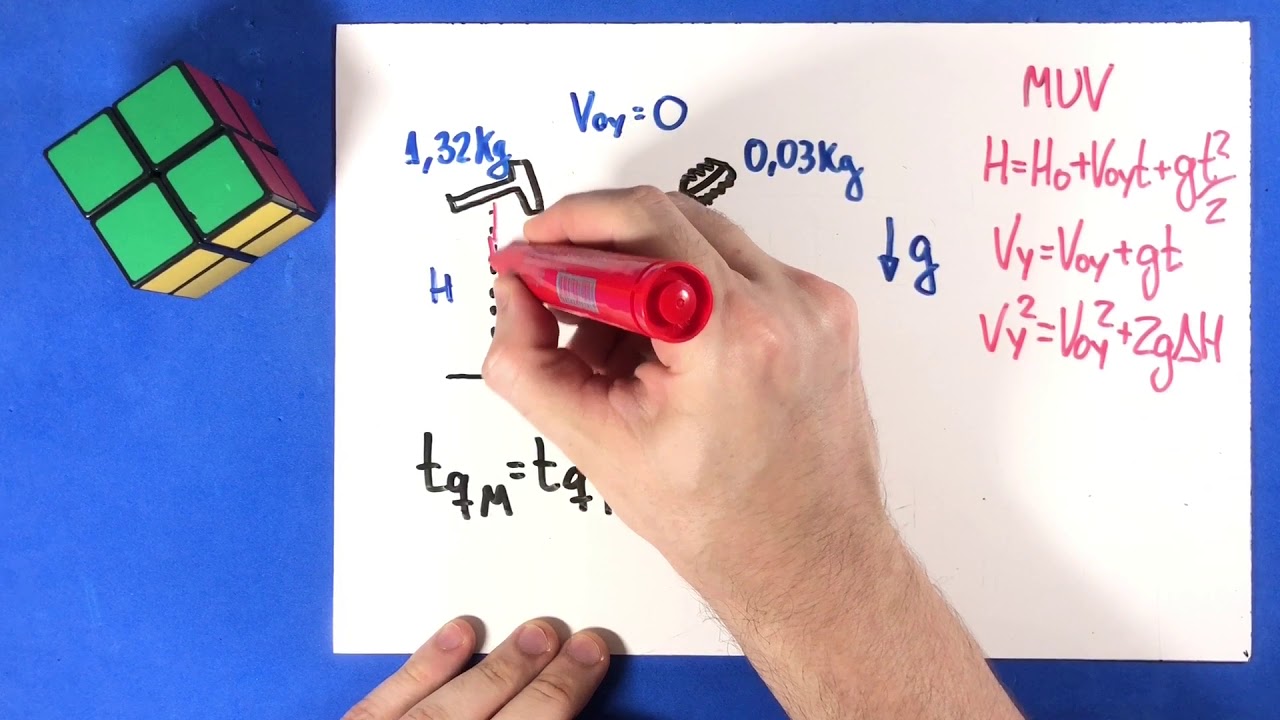 V₀y=0
1,32Kg
0,03Kg
H
g
tqM=tq
MUV
H=H₀+V₀yt+gt²/2
Vy=V₀y+gt
Vy²=V₀y²+2gΔH